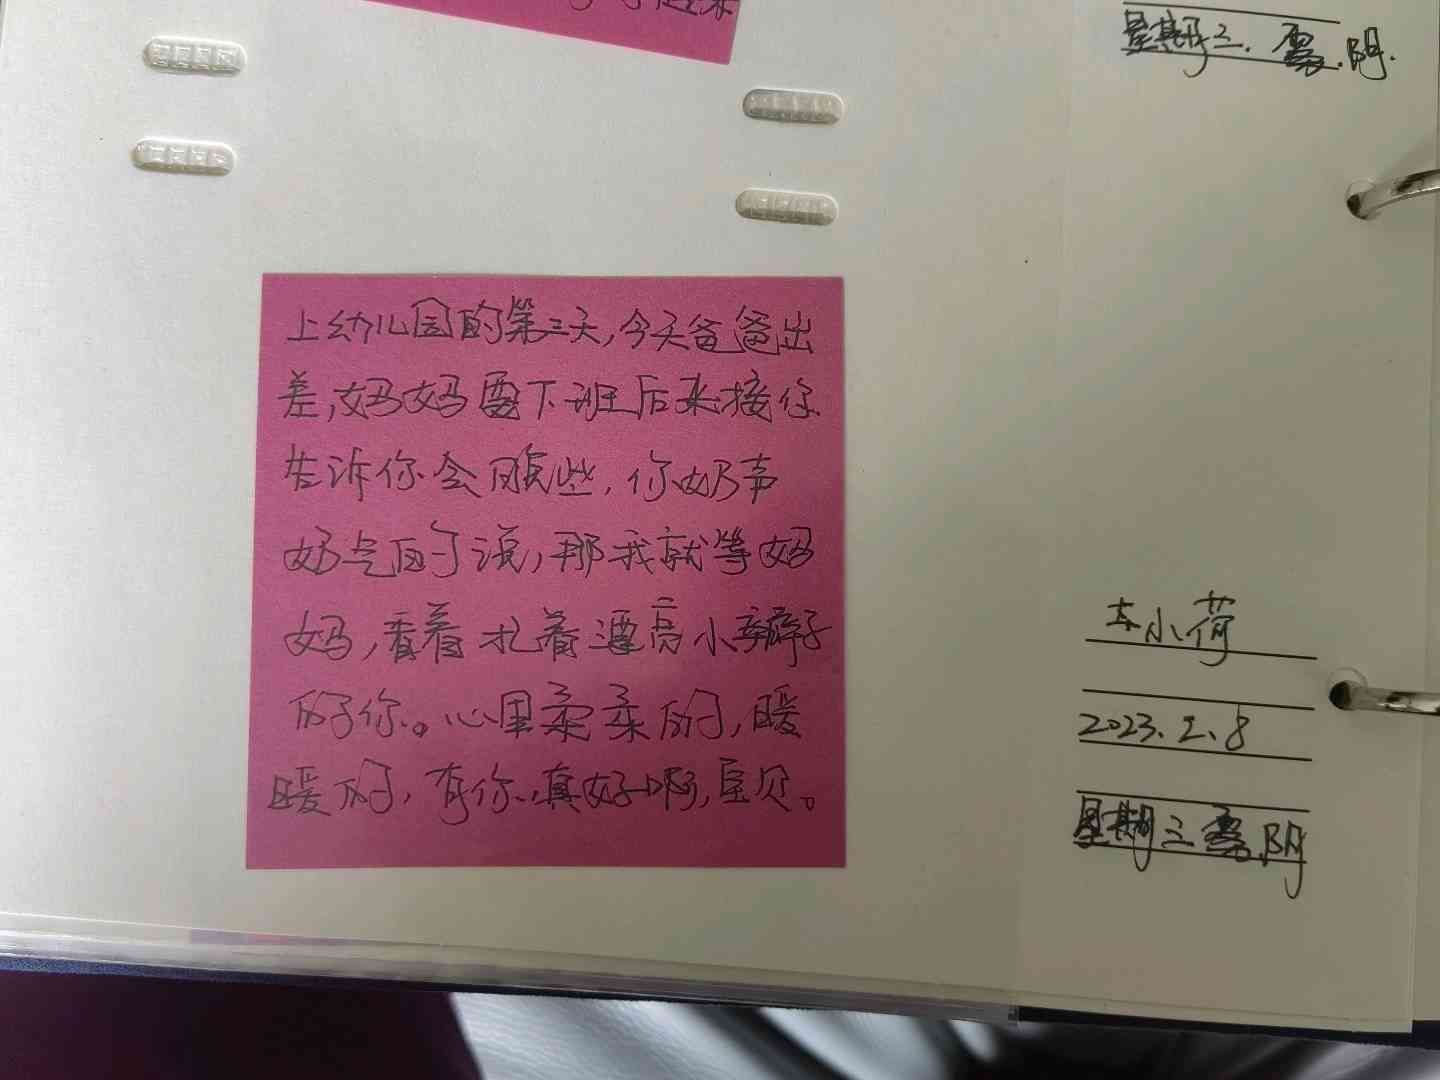 星期三.雾.阴.
上幼儿园的第三天,今天爸爸出
差,妈妈要下班后来接你
告诉你会晚些,你奶声
奶气的说,那我就等妈
妈,看着扎着漂亮小辫子
的你。心里柔柔的,暖
暖的,有你真好啊,宝贝。
小荷
2023.2.8
星期三雾.阴